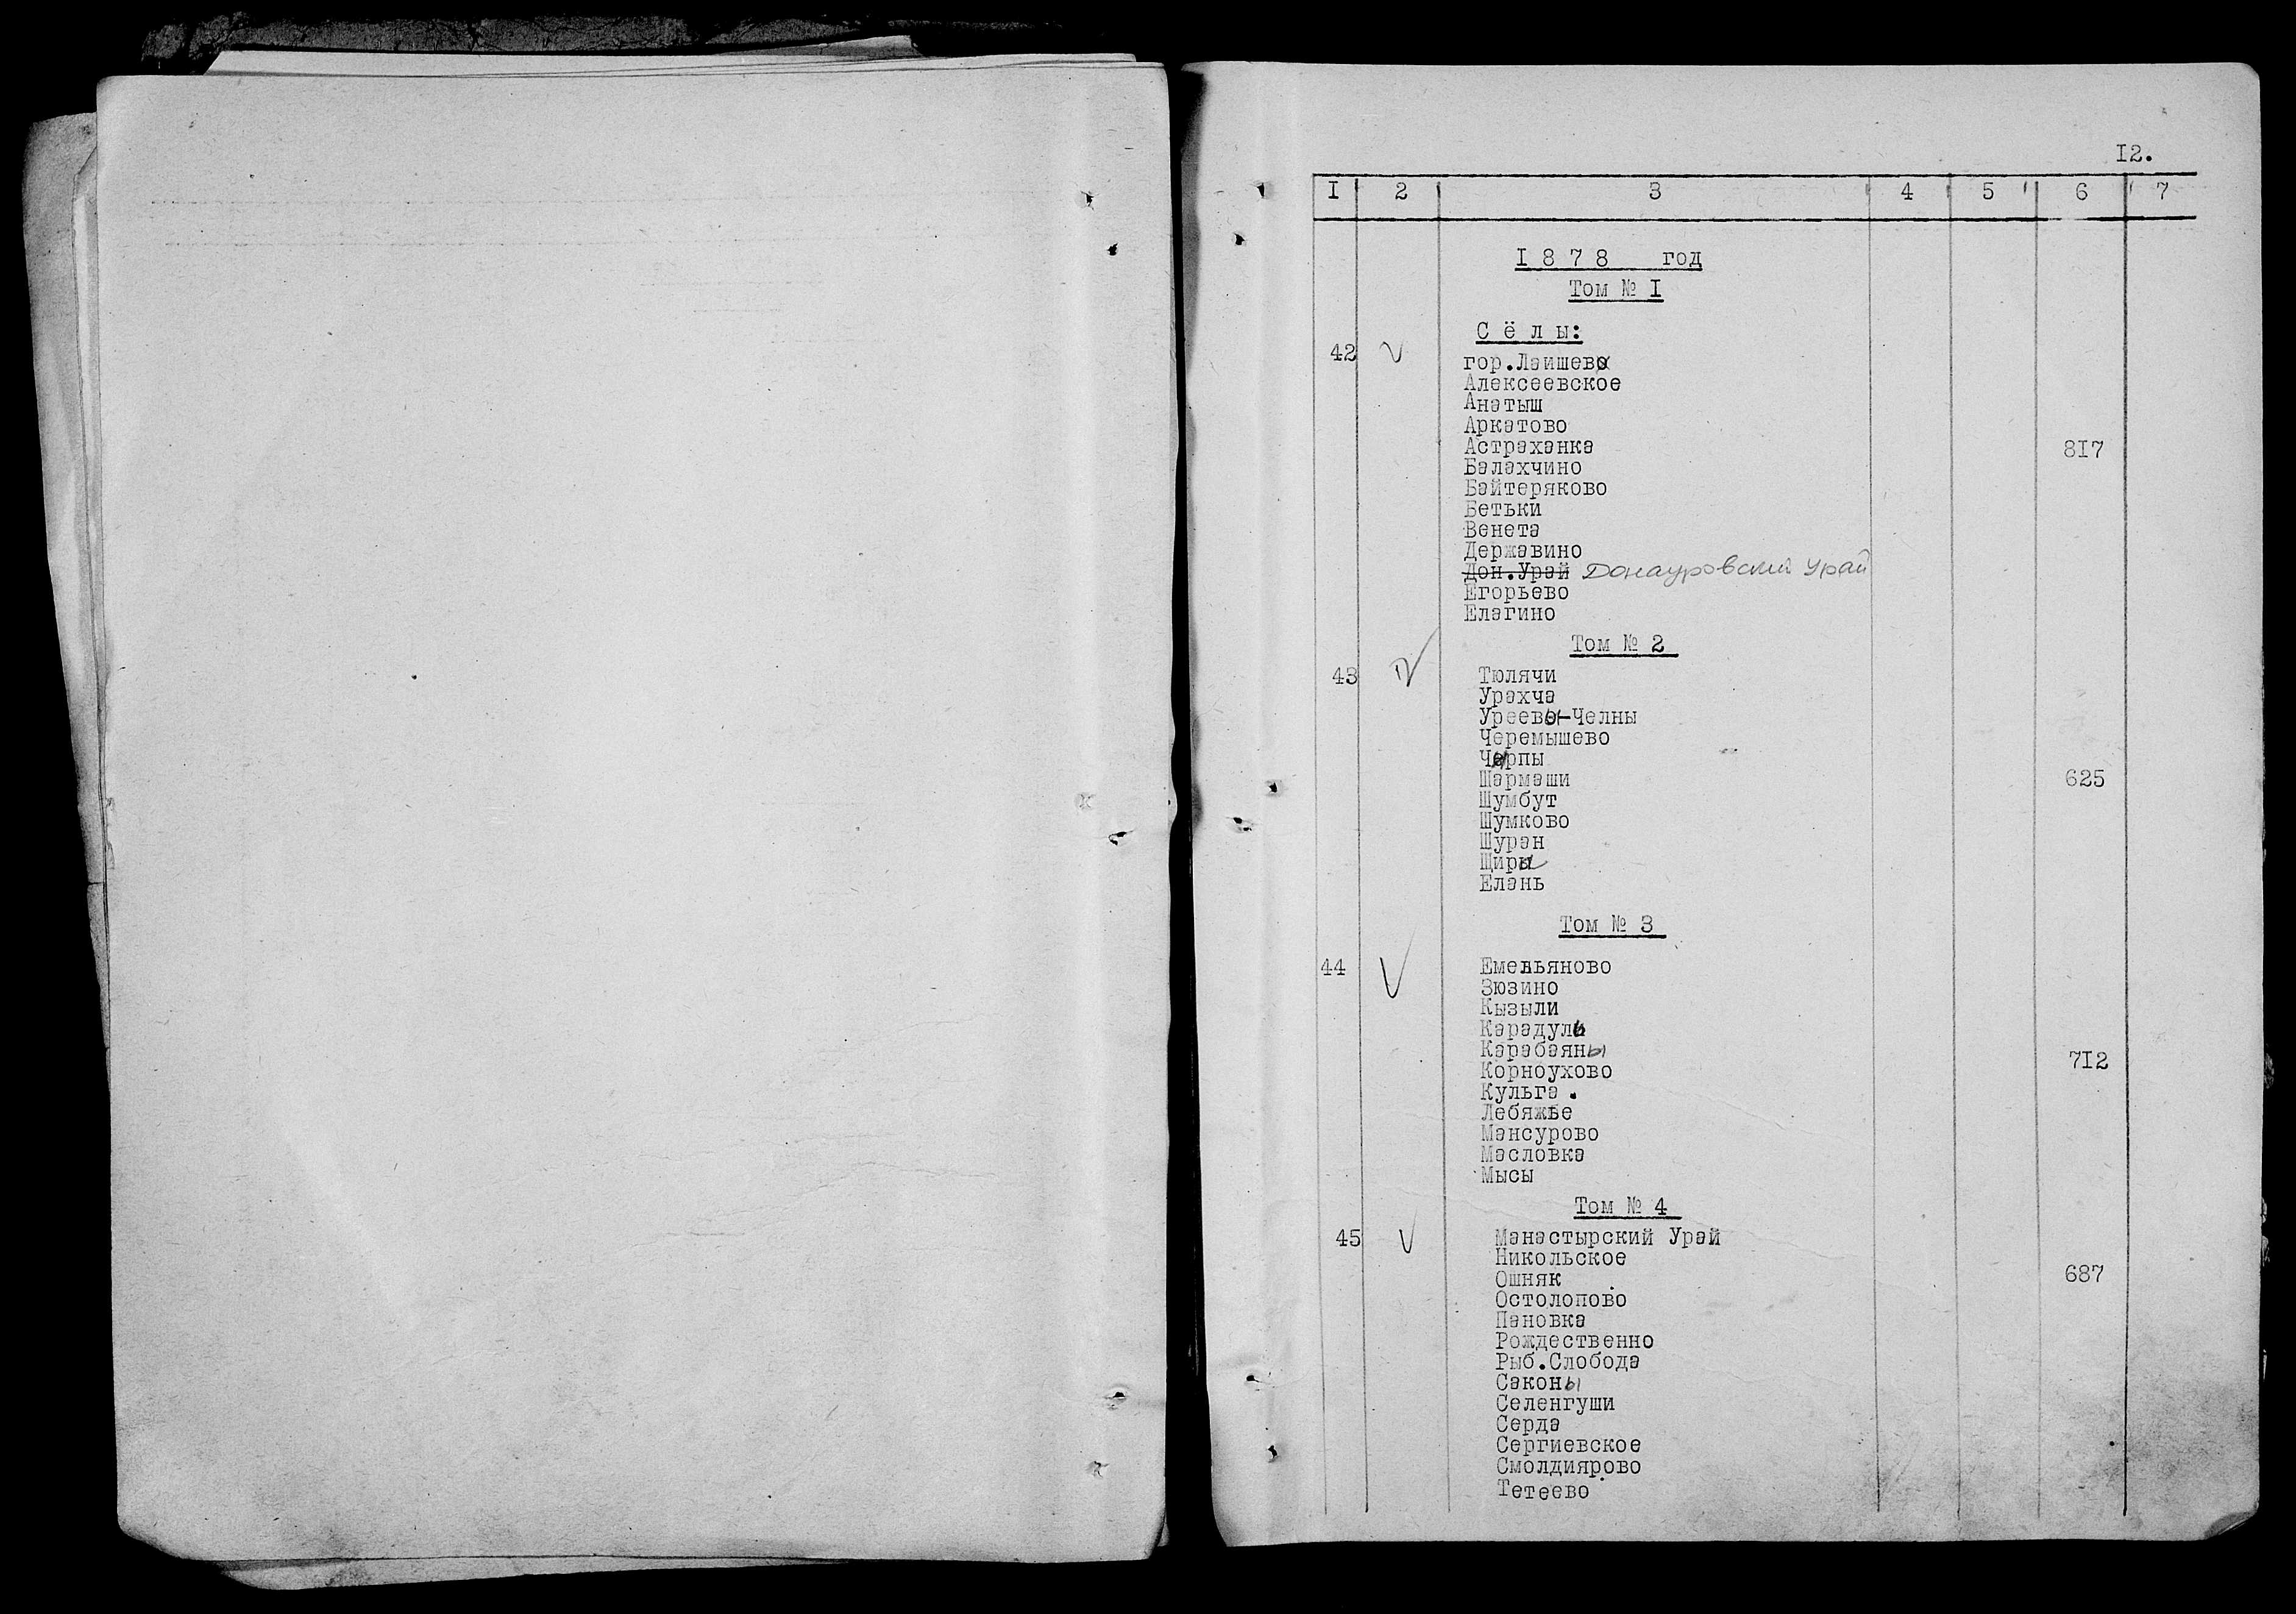 12.
I 2 3 4 5 6 7
I 8 7 8 год
Том № I
С ё л ы:
42 гор.Лаишев
Алексеевское
Анатыш
Аркатово
Астраханка 8I7
Балахчино
Байтеряково
Бетьки
Венета
Державино
Дон.Урай Донауровский Урай
Егорьево
Елагино
Том № 2
43 Тюлячи
Урахча
Уреевы-Челны
Черемышево
Чирпы
Шармаши 625
Шумбут
Шумково
Шуран
Елань
Том № 3
44 Емельяново
Зюзино
Кызыли
Карадули
Карабаяны
Корноухово 7I2
Кульга.
Лебяжье
Мансурово
Масловка
Мысы
Том № 4
45 Манастырский Урай
Никольское
Ошняк 687
Остолопово
Пановка
Рождественно
Рыб.Слобода
Саконы
Селенгуши
Серда
Сергиевское
Смолдиярово
Тетеево